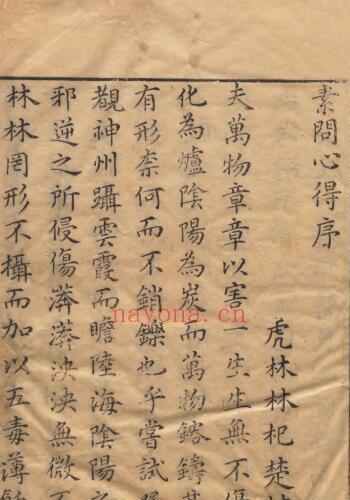 素問心得序
虎林林杞楚
夫萬物章章以害一生生無不傷
化為爐陰陽為炭而萬物鎔鑄
有形柰何而不銷鑠也乎嘗試
覩神州躡雲霞而瞻陸海陰陽之
邪逆之所侵傷漭漭泱泱無微不
林林罔形不攝而加以五毒薄
nayona.cn